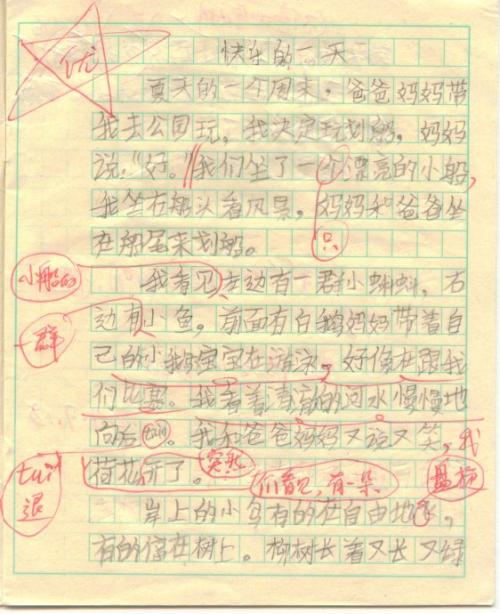 优
快乐的一天
夏天的一个周末，爸爸妈妈带
我去公园玩，我决定玩划船，妈妈
说：“好。”我们坐了一个漂亮的小船，
我坐在船头看风景，妈妈和爸爸坐
只
在船尾来划船。
小船的
我看见左边有一群小蝌蚪，右
边有小鱼，前面有白鹅妈妈带着自
群
己的小鹅宝宝在游泳，好像在跟我
们比赛。我看着清亮的河水慢慢地
向后tui。我和爸爸妈妈又说又笑，我
tui
退
荷花开了。
突然
们看见，有一朵
岸上的小鸟有的在自由地飞，
有的停在树上。柳树长着又长又绿